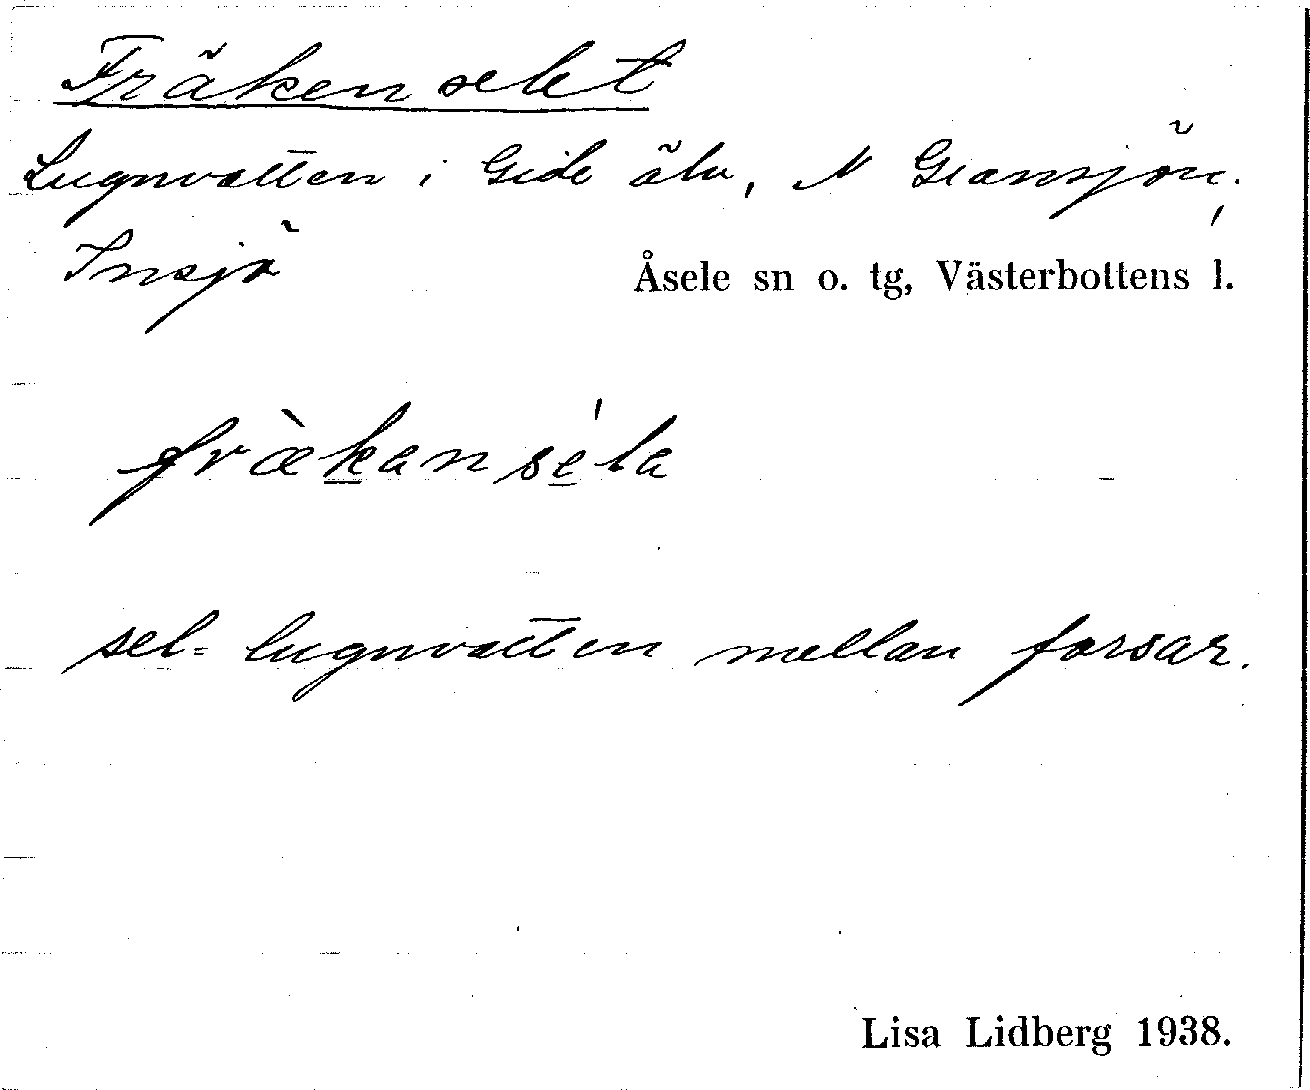 Fräkenselet
Lugnvatten i Gide älv, N Gransjön,
Insjö
Åsele sn o. tg, Västerbottens l.
fræ̀kanséla
sel = lugnvatten mellan forsar.
Lisa Lidberg 1938.